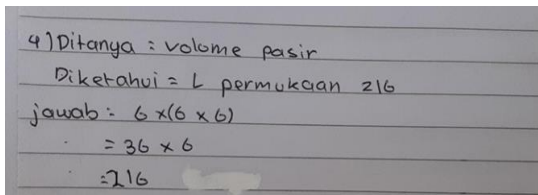 4) Ditanya = Volome pasir
Diketahui = L permukaan 216
jawab = 6 x (6 x 6)
= 36 x 6
= 216